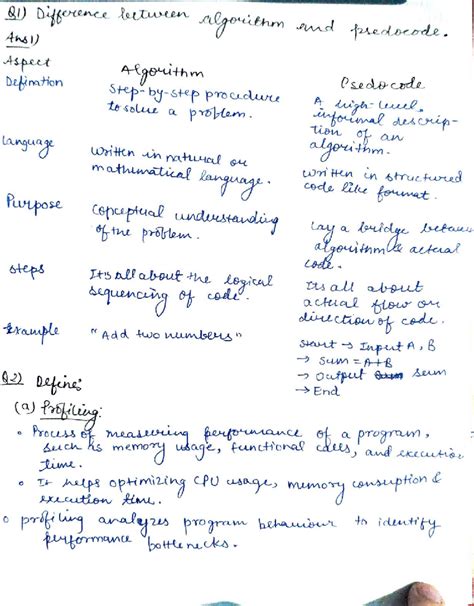 Q1) Difference between algorithm and psedocode.
Ans1)
Aspect Algorithm Psedocode
Defination Step-by-step procedure to solve a problem. A high-level informal description of an algorithm.
Language Written in natural or mathematical language. Written in structured code like format.
Purpose Conceptual understanding of the problem. Lay a bridge between algorithm & acteral code.
Steps Its all about the logical sequencing of code. Its all about acteral flow or direction of code.
Example "Add two numbers" Start → Input A, B
→ Sum = A+B
→ Output sum
→ End
Q2) Define:
(a) Profiling:
• Process of measuring performance of a program, such as memory usage, functional calls, and execution time.
• It helps optimizing CPU usage, memory consuption & execution time.
• profiling analyzes program behaviour to identify performance bottlenecks.